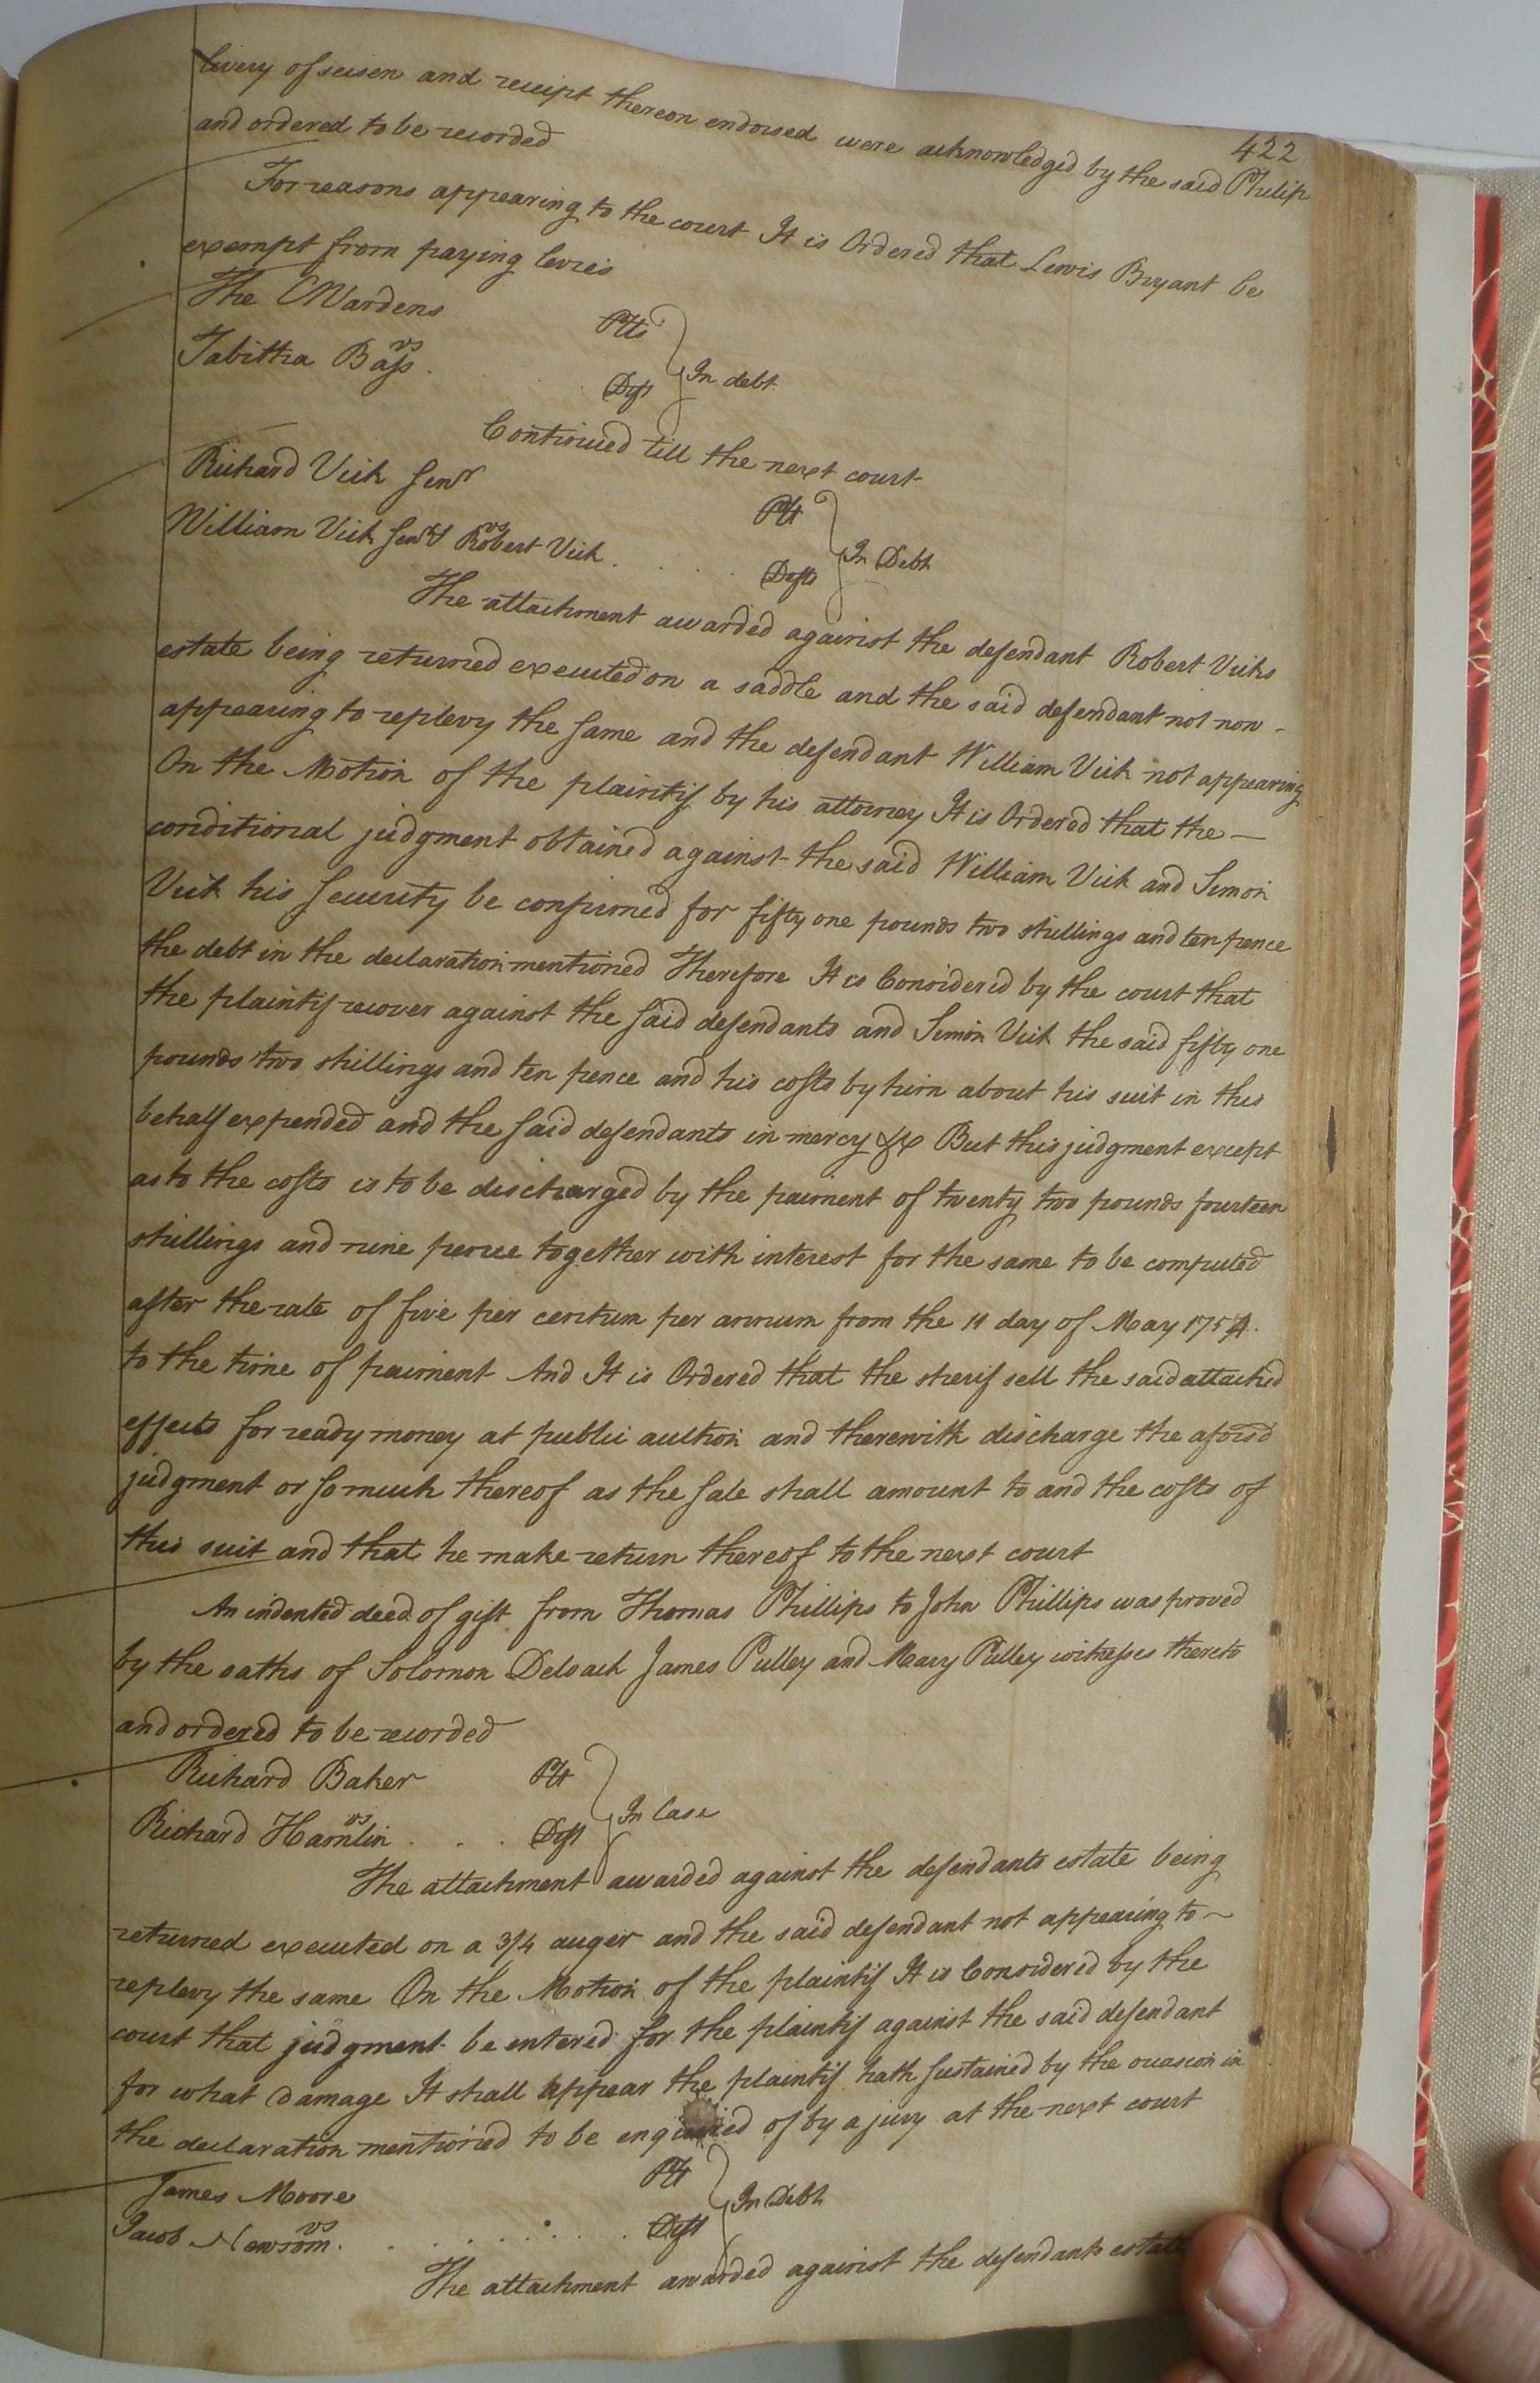 422
livery of seisen and receipt thereon endorsed were acknowledged by the said Philip
and ordered to be recorded
For reasons appearing to the court It is Ordered that Lewis Bryant be
exempt from paying levies
The CWardens Plts
vs
Tabitha Bass . . . Deft In debt
Continued till the next court
Richard Vick Senr Plt
vs
William Vick Senr & Robert Vick . . . . Defts In Debt
The attachment awarded against the defendant Robert Vicks
estate being returned executed on a saddle and the said defendant not now -
appearing to replevy the same and the defendant William Vick not appearing
On the Motion of the plaintif by his attorney It is Ordered that the —
conditional judgment obtained against the said William Vick and Simon
Vick his security be confirmed for fifty one pounds two shillings and ten pence
the debt in the declaration mentioned Therefore It is Considered by the court that
the plaintif recover against the said defendants and Simon Vick the said fifty one
pounds two shillings and ten pence and his costs by him about his suit in this
behalf expended and the said defendants in mercy &c But this judgment except
as to the costs is to be discharged by the paiment of twenty two pounds fourteen
shillings and nine pence together with interest for the same to be computed
after the rate of five per centum per annum from the 11 day of May 1754.
to the time of paiment And It is Ordered that the sherif sell the said attached
effects for ready money at public auction and therewith discharge the aforsd
judgment or so much thereof as the sale shall amount to and the costs of
this suit and that he make return thereof to the next court
An indented deed of gift from Thomas Phillips to John Phillips was proved
by the oaths of Solomon Deloach James Pulley and Mary Pulley witnesses thereto
and ordered to be recorded
Richard Baker Plt
vs
Richard Hamlin . . . Deft In Case
The attachment awarded against the defendants estate being
returned executed on a 3/4 auger and the said defendant not appearing to ~
replevy the same On the Motion of the plaintif It is Considered by the
court that judgment be entered for the plaintif against the said defendant
for what damage It shall appear the plaintif hath sustained by the occasion in
the declaration mentioned to be enquired of by a jury at the next court
James Moore Plt
vs
Jacob Newsom . . . . . . . Deft In Debt
The attachment awarded against the defendants estate